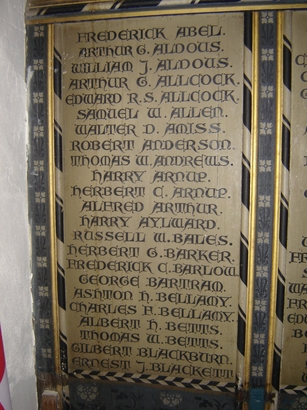 FREDERICK ABEL.
ARTHUR G. ALDOUS.
WILLIAM J. ALDOUS.
ARTHUR G. ALLCOCK.
EDWARD R.S. ALLCOCK.
SAMUEL W. ALLEN.
WALTER D. AMISS.
ROBERT ANDERSON.
THOMAS W. ANDREWS.
HARRY ARNUP.
HERBERT C. ARNUP.
ALFRED ARTHUR.
HARRY AYLWARD.
RUSSELL W. BALES.
HERBERT G. BARKER.
FREDERICK C. BARLOW.
GEORGE BARTRAM.
ASHTON H. BELLAMY.
CHARLES F. BELLAMY.
ALBERT H. BETTS.
THOMAS W. BETTS.
GILBERT BLACKBURN.
ERNEST J. BLACKETT.